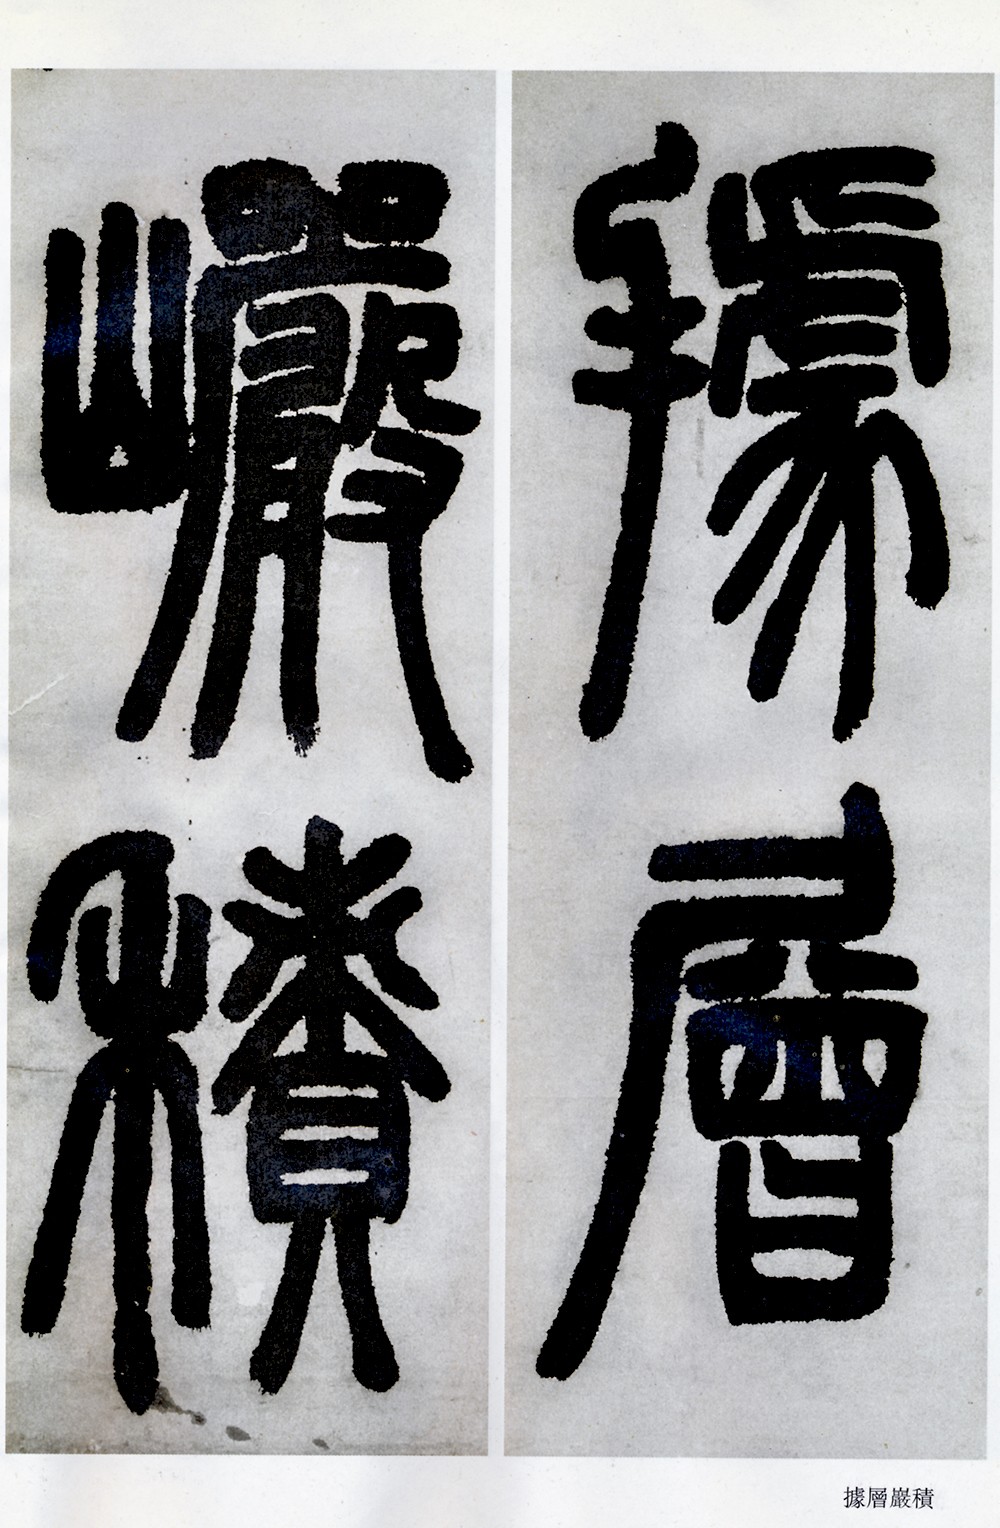 據層
巖積
據層巖積